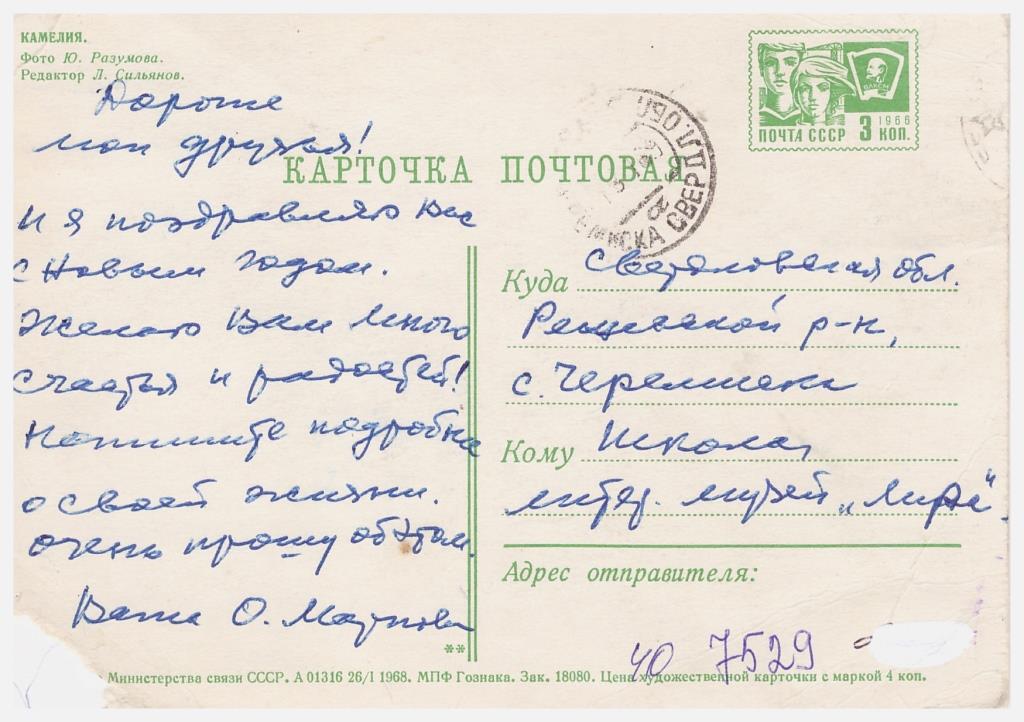 КАМЕЛИЯ.
Фото Ю. Разумова.
Редактор Л. Сильянов.
ПОЧТА СССР 3 КОП.
1966
ВЛКСМ
КАРТОЧКА ПОЧТОВАЯ
Дорогие
мои друзья!
И я поздравляю Вас
с Новым годом.
Желаю Вам много
счастья и радостей!
Напишите подробно
о своей жизни.
Очень прошу об этом.
Ваша О.
Куда Свердловская обл.
Режевской р-н,
с. Черемисска
Кому Школа,
литер. музей „Лира".
Адрес отправителя:
ЧО 7529
**
Министерства связи СССР. А 01316 26/I 1968. МПФ Гознака. Зак. 18080. Цена художественной карточки с маркой 4 коп.
СВЕРДЛ. ОБЛ.